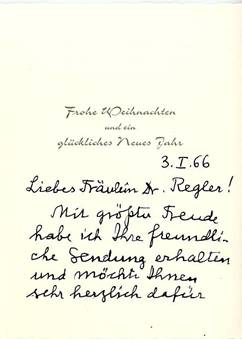 Frohe Weihnachten
und ein
glückliches Neues Jahr
3. I. 66
Liebes Fräulein Dr. Regler!
Mit größter Freude
habe ich Ihre freundli-
che Sendung erhalten
und möchte Ihnen
sehr herzlich dafür